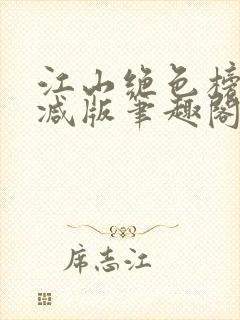 江山绝色榜
减版笔趣阁
席志江